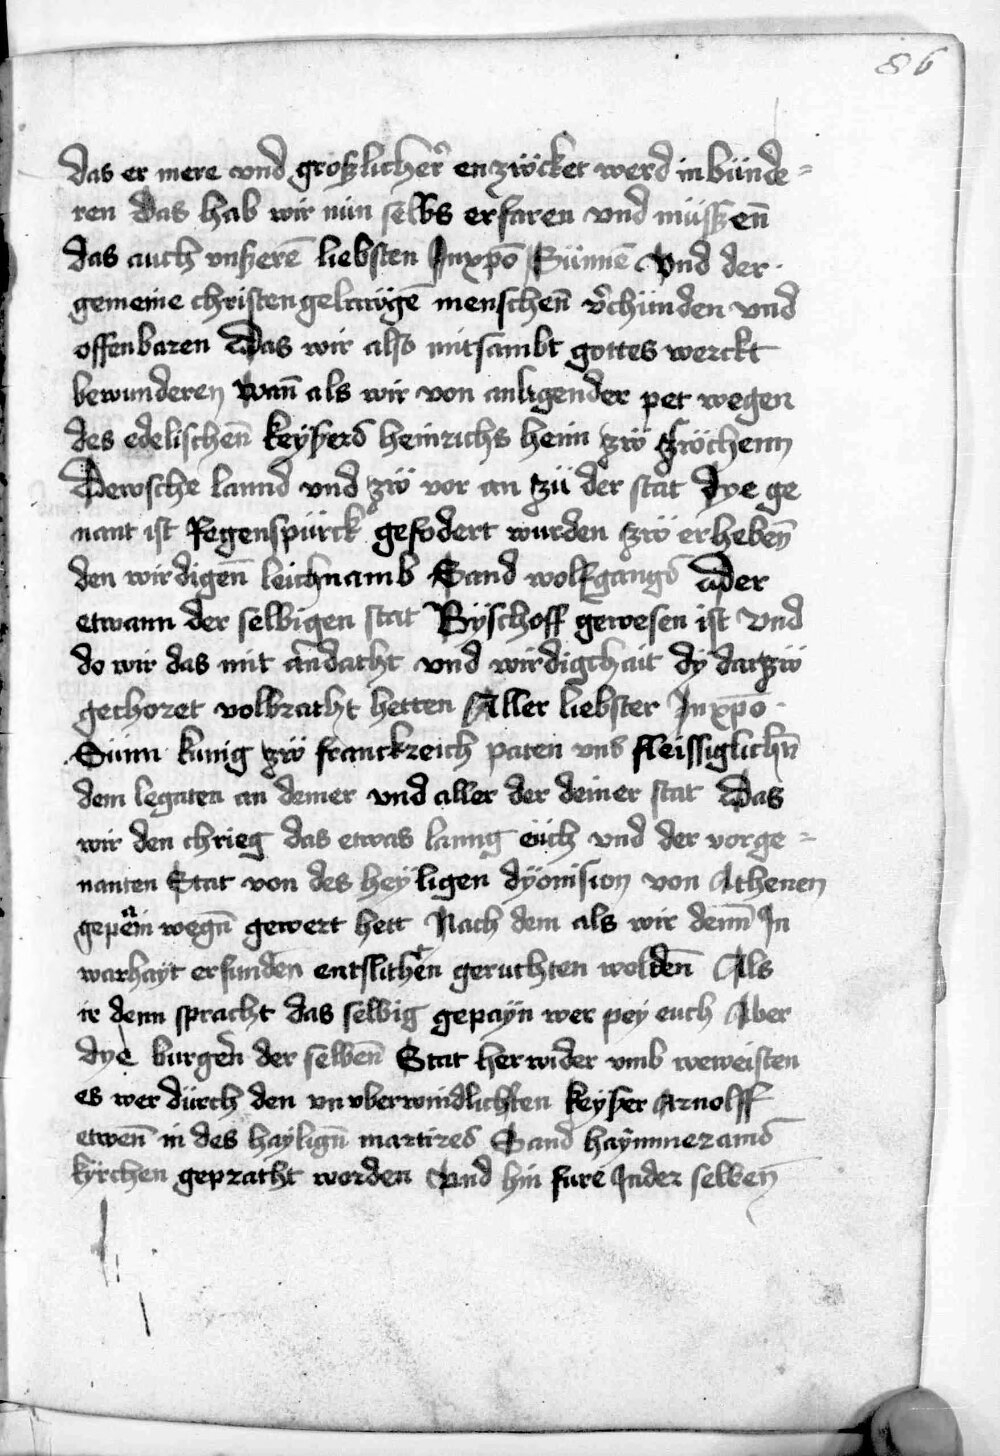 86
das er mere vnd groß̈licher̄ enzwcket werd in bünde=
ren Das hab wir nün selbs erfaren vnd müssen̄
das auch vnßerē liebsten Jnxp̄o Sünnē Vnd der
gemeine christengelawgē menschen̄ v̄chünden vnd
offenbaren Das wir also mitsambt gottes werckt
bewunderen Wan̄ als wir von anligender pet wegen
des edelischen̄ keyßers heinrichs herin zw
Dewsche lannd vnd zw vor an zü der stat dye ge
nant ist Regenspürck gefodert wurden zw erheben̄
den wirdigen̄ leichnamb Sand wolfgangs der
etwann der selbigen stat Byschoff gewesen ist Vnd
do wir das mit andacht vnd wirdigchait dy dartzw
gehoret volbracht hetten Aller liebster Jn xp̄o
Sünn kunig zw franckreich paten vns fleissiglichn̄
dem legaten an deiner vnd aller der deiner stat Das
wir den chrieg das etwas lanng eüch vnd der vorge=
nanten Stat von des heyligen dyonision von Athenen
gepein wegn̄ gewert hett Nach dem als wir denn̄ Jn
warhayt erfunden entslichen geruchten wolden̄ Als
ir denn spracht das selbig gepayn wer pey euch Aber
dye burger der selben̄ Stat herwider vmb weweisten
es wer dürch den vnvberwindlichsten keyßer Arnolff
etwen̄ in des haylign̄ martires Sand haymmerams
kyrchen gepracht worden Vnd hin fure Jnder selben̄